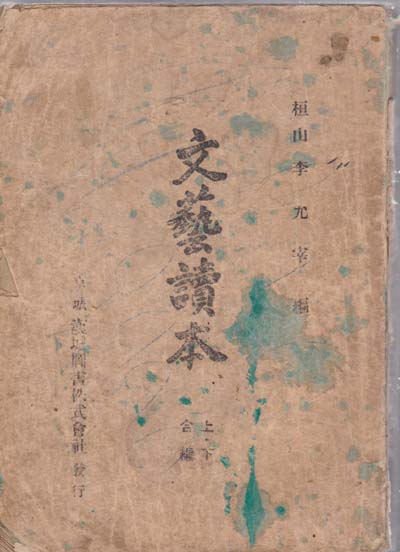 桓山 李允宰 編
文藝讀本
上・下
合編
圖書株式會社 發行